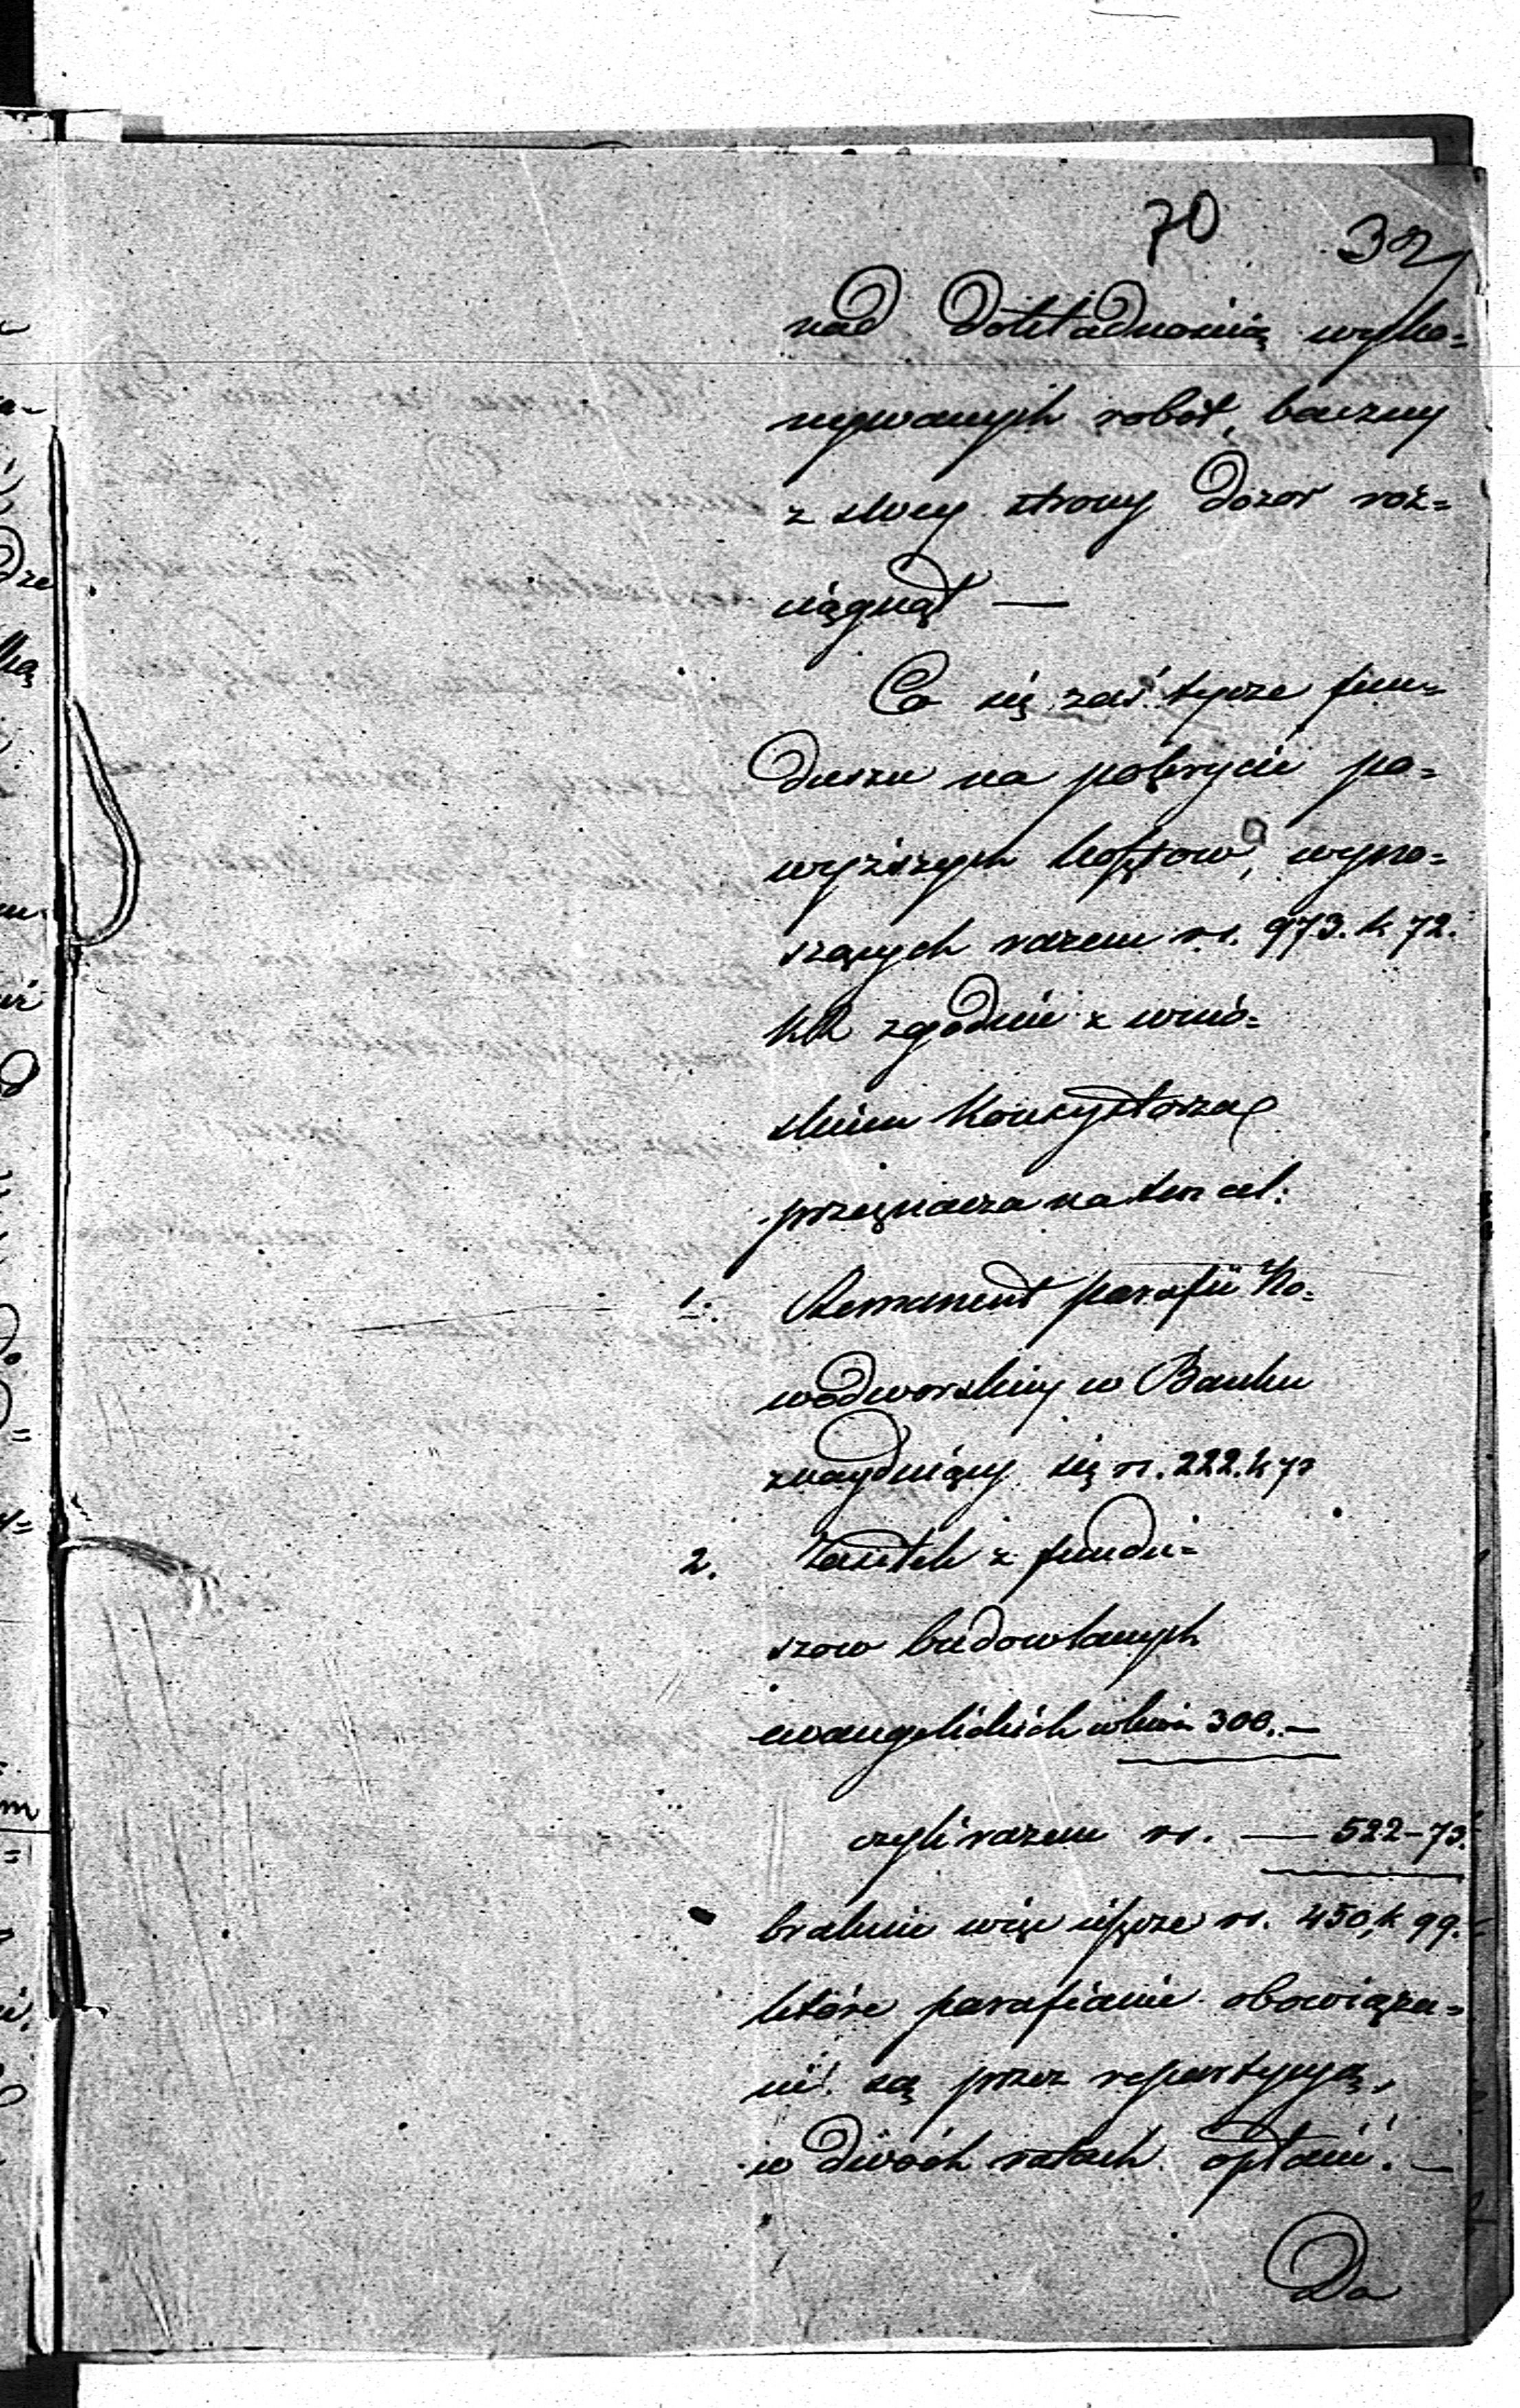 70 32
nad dokładnością wyko=
nywanych robót, baczny
z swey strony dozor roz=
ciągnął —
Co się zaś tycze fun=
duszu na pokrycie po=
wyższych kosztow, wyno=
szących razem rs. 973. k 72.
zgodnie z wnio=
skiem Konsystorza
przeznacza na ten cel:
1. Remanent parafii No=
wodworskiey w Banku
znayduiący się rs. 222. k 73
2. Zasiłek z fundu=
szow budowlanych
ewangelickich 300.—
czyli razem rs. — 522—73.
braknie więc ieszcze rs. 450, k 99.
które parafianie obowiąza=
ni są przez repartycyą,
w dwóch ratach opłacić. —
Da